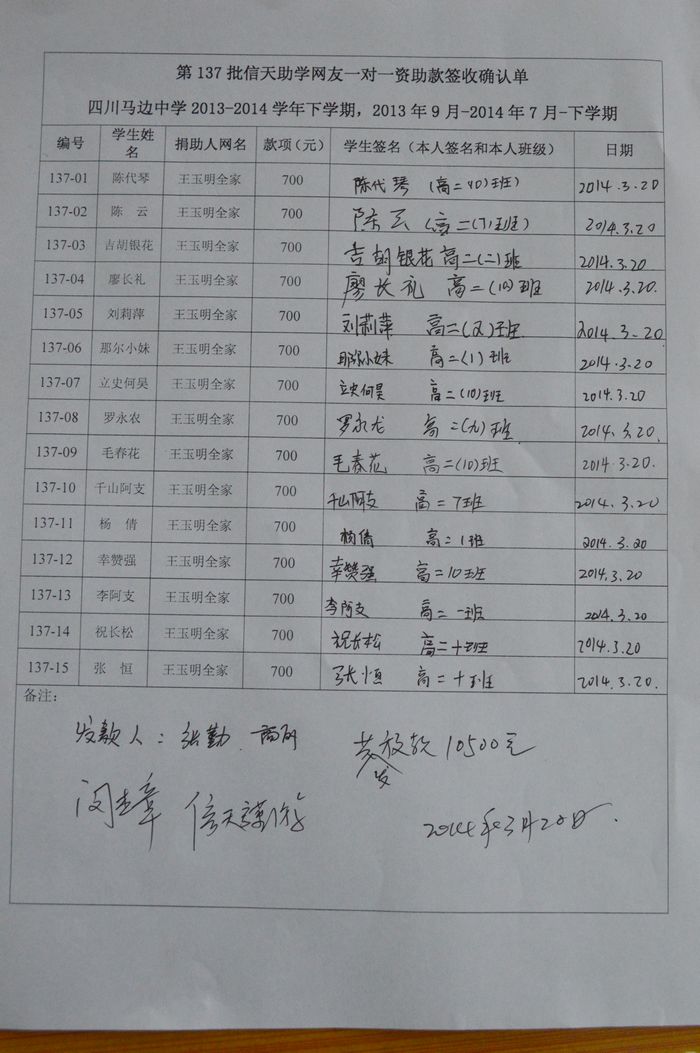 第 137 批信天助学网友一对一资助款签收确认单
四川马边中学 2013-2014 学年下学期，2013 年 9 月-2014 年 7 月-下学期
编号 学生姓名 捐助人网名 款项（元） 学生签名（本人签名和本人班级） 日期
137-01 陈代琴 王玉明全家 700 陈代琴 （高二（10）班） 2014.3.20
137-02 陈 云 王玉明全家 700 陈云 （高二（7）班） 2014.3.20
137-03 吉胡银花 王玉明全家 700 吉胡银花 高二（二）班 2014.3.20
137-04 廖长礼 王玉明全家 700 廖长礼 高二（10）班 2014.3.20
137-05 刘莉萍 王玉明全家 700 刘莉萍 高二 班 2014.3.20
137-06 那尔小妹 王玉明全家 700 那尔小妹 高二（1）班 2014.3.20
137-07 立史何昊 王玉明全家 700 立史何昊 高二（10）班 2014.3.20
137-08 罗永农 王玉明全家 700 罗永龙 高二（九）班 2014.3.20
137-09 毛春花 王玉明全家 700 毛春花 高二（10）班 2014.3.20
137-10 千山阿支 王玉明全家 700 千山阿支 高二7班 2014.3.20
137-11 杨 倩 王玉明全家 700 杨倩 高二1班 2014.3.20
137-12 幸赞强 王玉明全家 700 幸赞强 高二10班 2014.3.20
137-13 李阿支 王玉明全家 700 李阿支 高二一班 2014.3.20
137-14 祝长松 王玉明全家 700 祝长松 高二十班 2014.3.20
137-15 张 恒 王玉明全家 700 张恒 高二十班 2014.3.20.
备注：
发款人：张勤 共放款10500元
发
信天谨游 2014年3月20日.